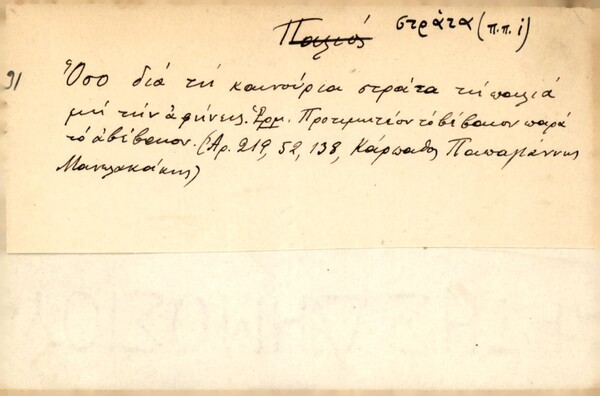 Παλιός στράτα (π.π. i)
91 Ὅσο διά τή καινούρια στράτα τή παλιά
μή τήν ἀφήνεις. Ἑρμ. Προτιμητέον τό βέβαιον παρά
τό ἀβέβαιον. (Αρ. 219, 52, 138, Κάρπαθος Παπαγιάννης
Μανωλακάκης)